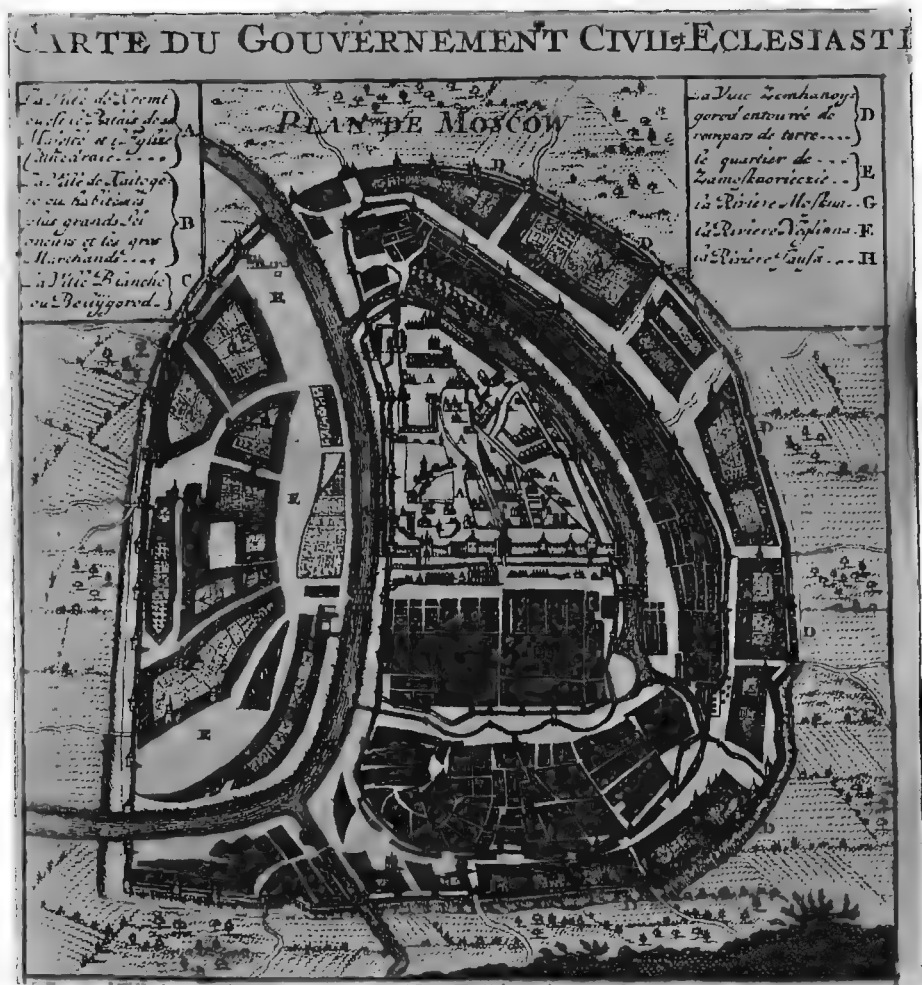 CARTE DU GOUVERNEMENT CIVIL et ECLESIASTI
PLAN DE MOSCOW
La Ville de Kremt
ou est le Palais de sa
Majesté et l'Eglise
Cathedrale
A
La Ville de Kaitogo
ro ou habitent les
plus grands Sei
gneurs et les gros
Marchands
B
La Ville Blanche
ou Beuijgorod
C
La Ville Zemhanoy
gorod entourrée de
rempars de terre
D
le quartier de
E
la Riviere Moskun G
la Riviere Neglinna F
la Riviere Yausa H
D
D
D
D
D
E
E
E
A
A
A